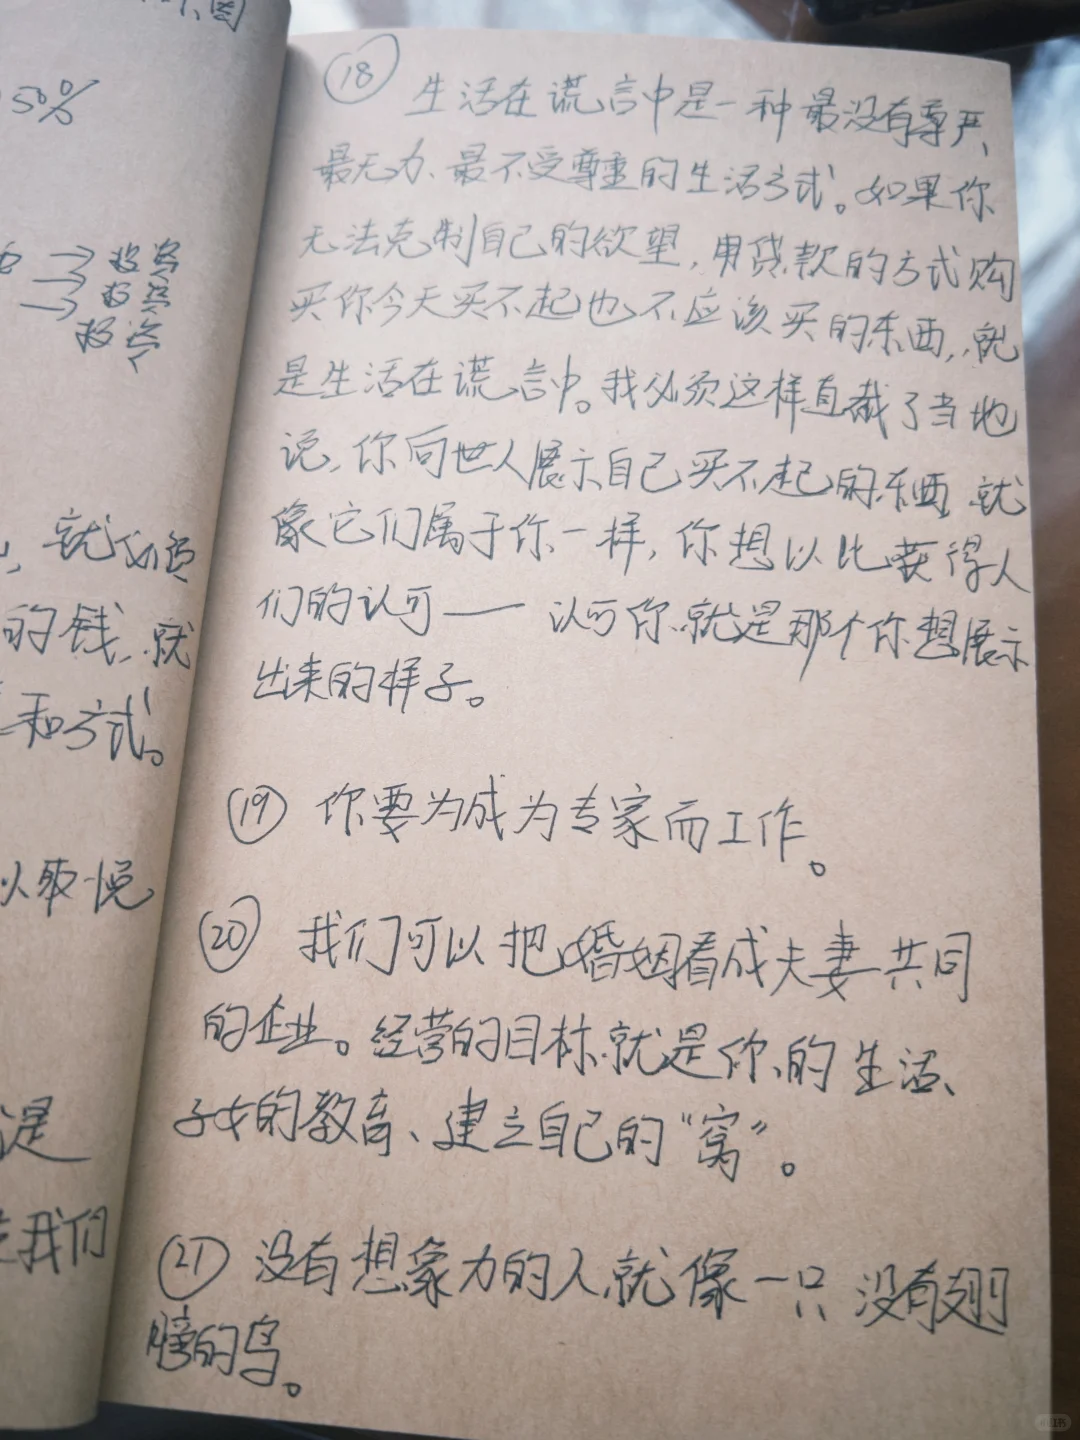 50%
→ 投资
→ 投资
投资
的钱,就
和方式。
以取悦
是
我们
⑱ 生活在谎言中是一种最没有尊严、
最无力、最不受尊重的生活方式。如果你
无法克制自己的欲望,用贷款的方式购
买你今天买不起也不应该买的东西,就
是生活在谎言中。我必须这样直截了当地
说,你向世人展示自己买不起的东西,就
像它们属于你一样,你想以此获得人
们的认可——认可你就是那个你想展示
出来的样子。
⑲ 你要为成为专家而工作。
⑳ 我们可以把婚姻看成夫妻共同
的企业。经营的目标就是你的生活、
子女的教育、建立自己的“窝”。
㉑ 没有想象力的人就像一只没有翅
膀的鸟。